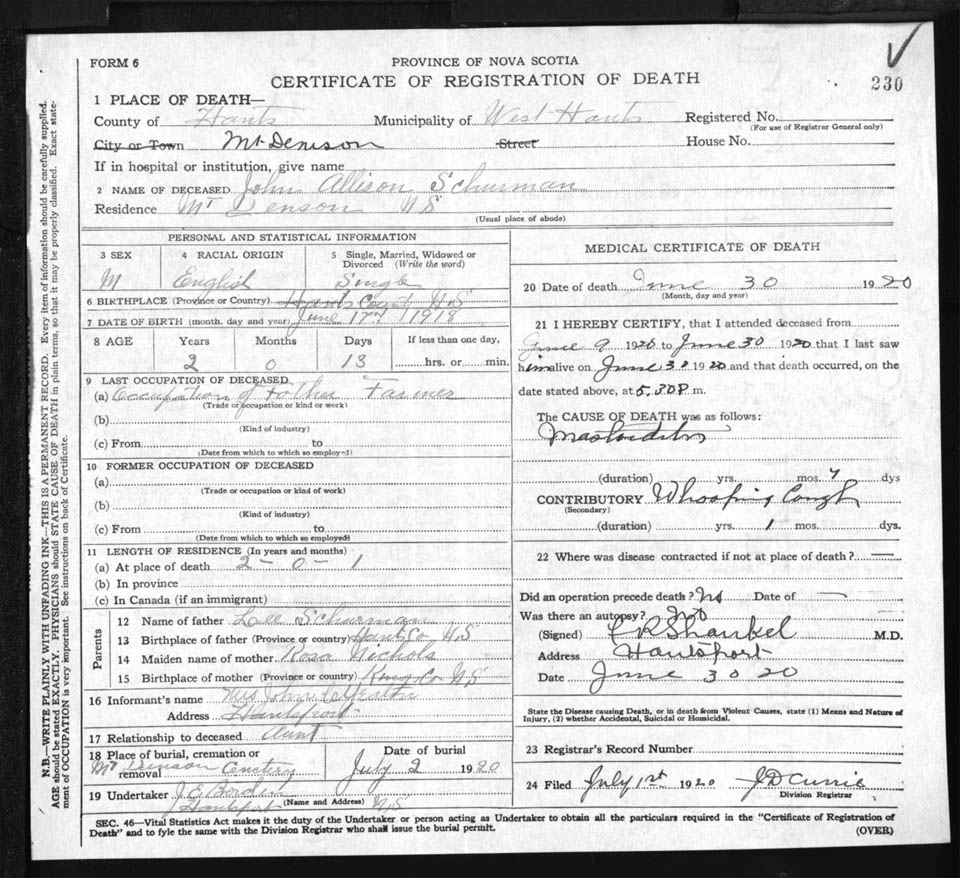 FORM 6
PROVINCE OF NOVA SCOTIA
230
CERTIFICATE OF REGISTRATION OF DEATH
1 PLACE OF DEATH—
County of Hants Municipality of West Hants Registered No.
(For use of Registrar General only)
City or Town Mt Denison Street House No.
If in hospital or institution, give name
2 NAME OF DECEASED John Allison Schurman
Residence Mt Denson N S
(Usual place of abode)
PERSONAL AND STATISTICAL INFORMATION
3 SEX 4 RACIAL ORIGIN 5 Single, Married, Widowed or Divorced (Write the word)
M English Single
6 BIRTHPLACE (Province or Country) Hants County N.S
7 DATE OF BIRTH (month, day and year) June 17th 1918
8 AGE Years Months Days If less than one day,
2 0 13 hrs. or min.
9 LAST OCCUPATION OF DECEASED
(a) Occupation of Father Farmer
(Trade or occupation or kind or work)
(b)
(Kind of industry)
(c) From to
(Date from which to which so employed)
10 FORMER OCCUPATION OF DECEASED
(a)
(Trade or occupation or kind of work)
(b)
(Kind of industry)
(c) From to
(Date from which to which so employed)
11 LENGTH OF RESIDENCE (In years and months)
(a) At place of death 2 - 0 - 1
(b) In province
(c) In Canada (if an immigrant)
Parents
12 Name of father Lee Schurman
13 Birthplace of father (Province or country) Hants Co N.S
14 Maiden name of mother Rosa Nichols
15 Birthplace of mother (Province or country) Kings Co N S
16 Informant's name Mrs John
Address Hantsport
17 Relationship to deceased Aunt
18 Place of burial, cremation or removal Mt Denson Cemetery
Date of burial
July 2 1920
19 Undertaker J. E. Borden
Hantsport (Name and Address) N S
MEDICAL CERTIFICATE OF DEATH
20 Date of death June 30 1920
(Month, day and year)
21 I HEREBY CERTIFY, that I attended deceased from
June 9 1920 to June 30 1920 that I last saw
him alive on June 30 1920 and that death occurred, on the
date stated above, at 5.30 P. m.
The CAUSE OF DEATH was as follows:
Mastoiditis
(duration) yrs. mos. 7 dys
CONTRIBUTORY Whooping Cough
(Secondary)
(duration) yrs. 1 mos. dys.
22 Where was disease contracted if not at place of death? —
Did an operation precede death? No Date of —
Was there an autopsy? No
(Signed) Shankel M.D.
Address Hantsport
Date June 30 20
State the Disease causing Death, or in death from Violent Causes, state (1) Means and Nature of
Injury, (2) whether Accidental, Suicidal or Homicidal.
23 Registrar's Record Number
24 Filed July 1st 1920 J D Currie
Division Registrar
SEC. 46—Vital Statistics Act makes it the duty of the Undertaker or person acting as Undertaker to obtain all the particulars required in the "Certificate of Registration of
Death" and to fyle the same with the Division Registrar who shall issue the burial permit.
(OVER)
N.B.—WRITE PLAINLY WITH UNFADING INK—THIS IS A PERMANENT RECORD. Every item of information should be carefully supplied.
AGE should be stated EXACTLY. PHYSICIANS should STATE CAUSE OF DEATH in plain terms, so that it may be properly classified. Exact state-
ment of OCCUPATION is very important. See instructions on back of Certificate.